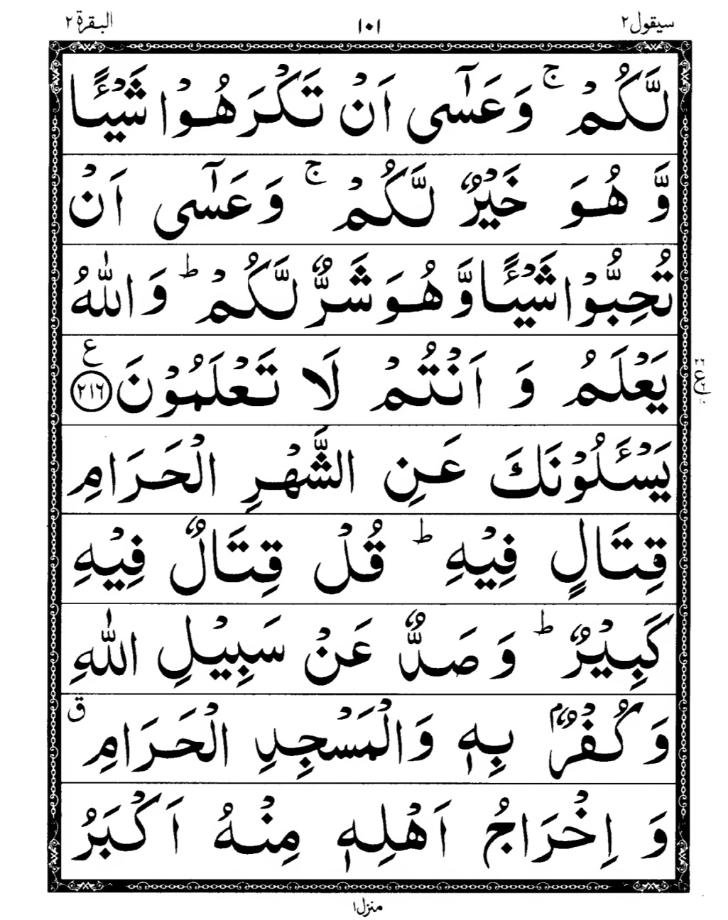 سیقول ۲
۱۰۱
البقرة ۲
لَّكُمْ ۚ وَعَسٰۤی اَنْ تَكْرَهُوْا شَیْـًٔا
وَّ هُوَ خَیْرٌ لَّكُمْ ۚ وَعَسٰۤی اَنْ
تُحِبُّوْا شَیْـًٔا وَّ هُوَ شَرٌّ لَّكُمْ ؕ وَاللّٰهُ
یَعْلَمُ وَ اَنْتُمْ لَا تَعْلَمُوْنَ ﴿۲۱۶﴾ ع
یَسْـَٔلُوْنَكَ عَنِ الشَّهْرِ الْحَرَامِ
قِتَالٍ فِیْهِ ؕ قُلْ قِتَالٌ فِیْهِ
كَبِیْرٌ ؕ وَ صَدٌّ عَنْ سَبِیْلِ اللّٰهِ
وَ كُفْرٌۢ بِهٖ وَالْمَسْجِدِ الْحَرَامِ ق
وَ اِخْرَاجُ اَهْلِهٖ مِنْهُ اَكْبَرُ
منزل ۱